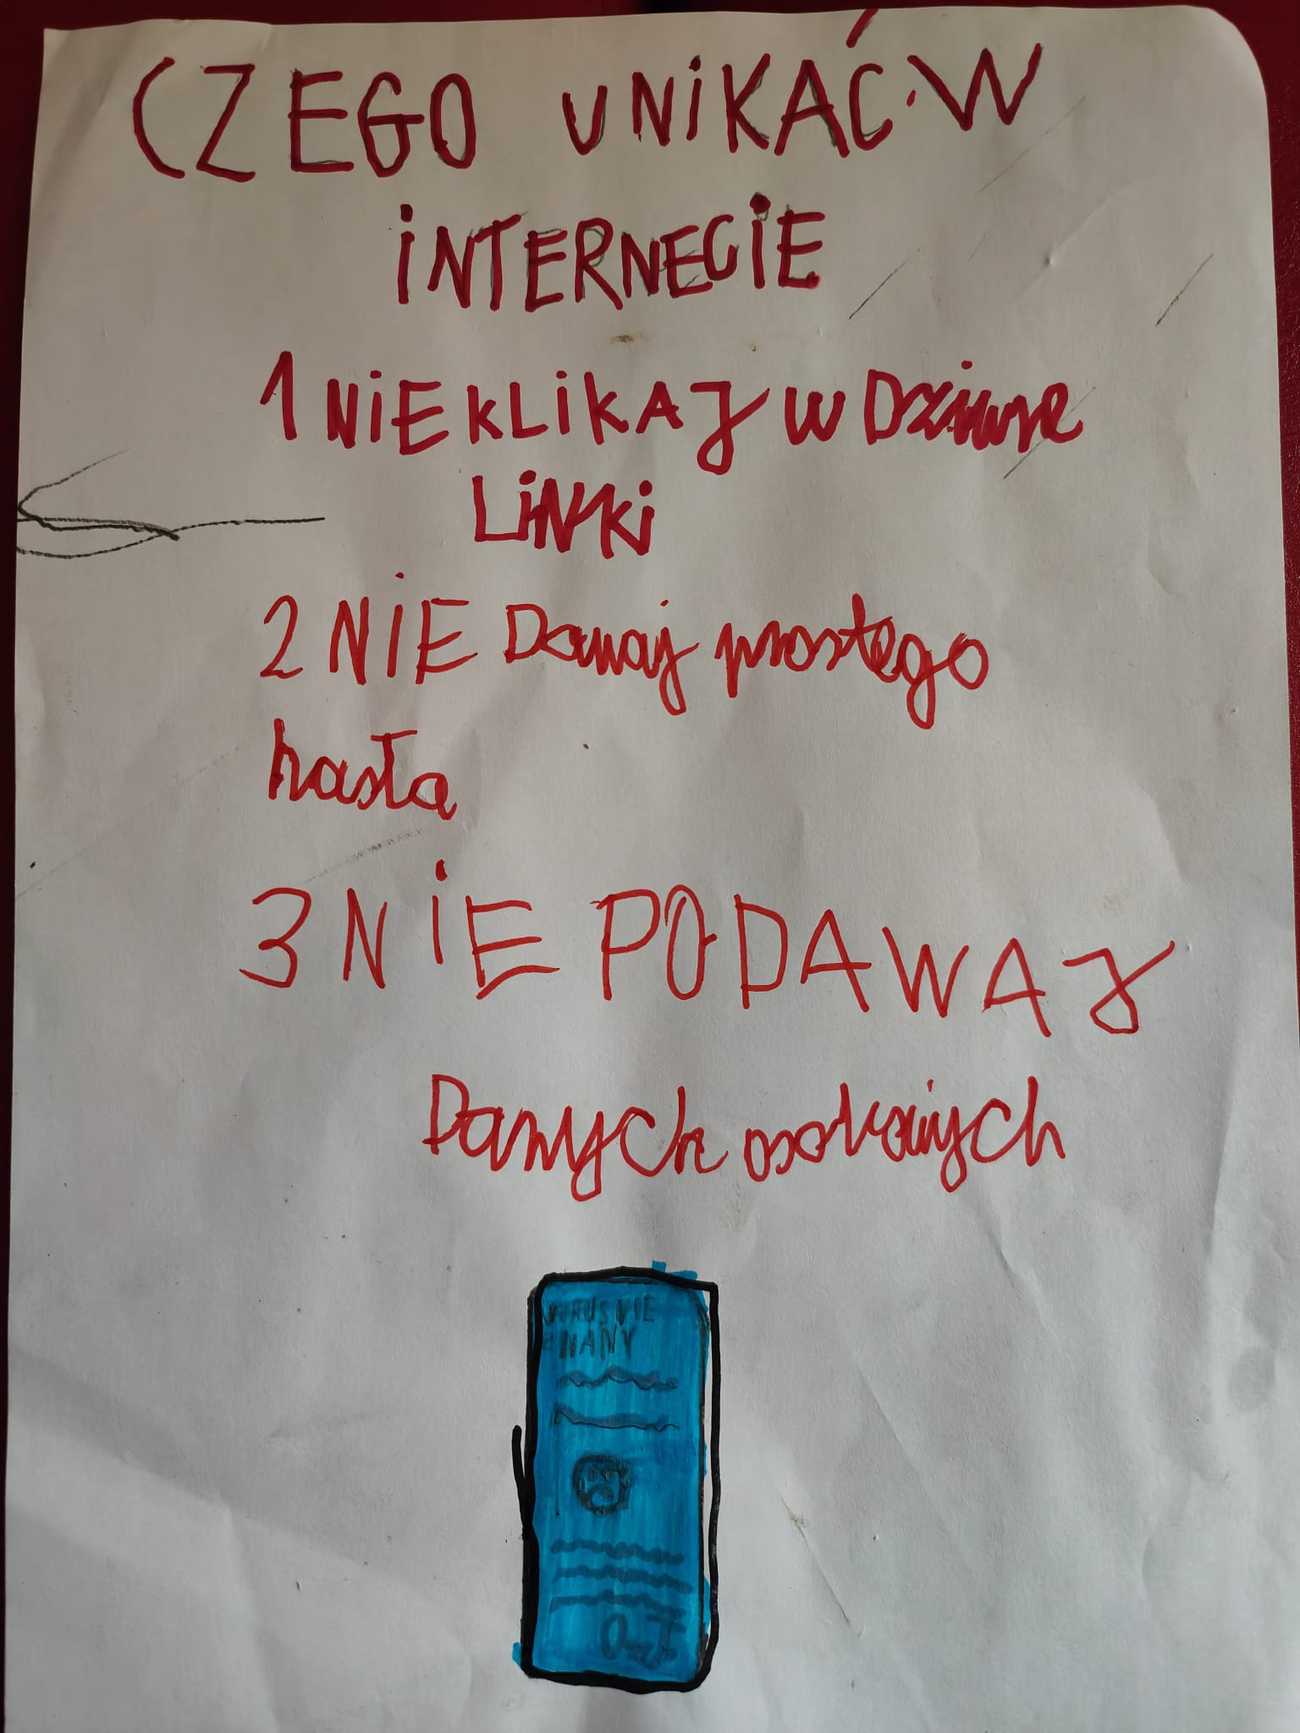 CZEGO UNIKAĆ W
INTERNECIE
1 NIE KLIKAJ W Dziwne
LiNKi
2 NIE Dawaj prostego
hasła
3 NIE PODAWAJ
Danych osobowych
WIRUS NIE
ZNANY